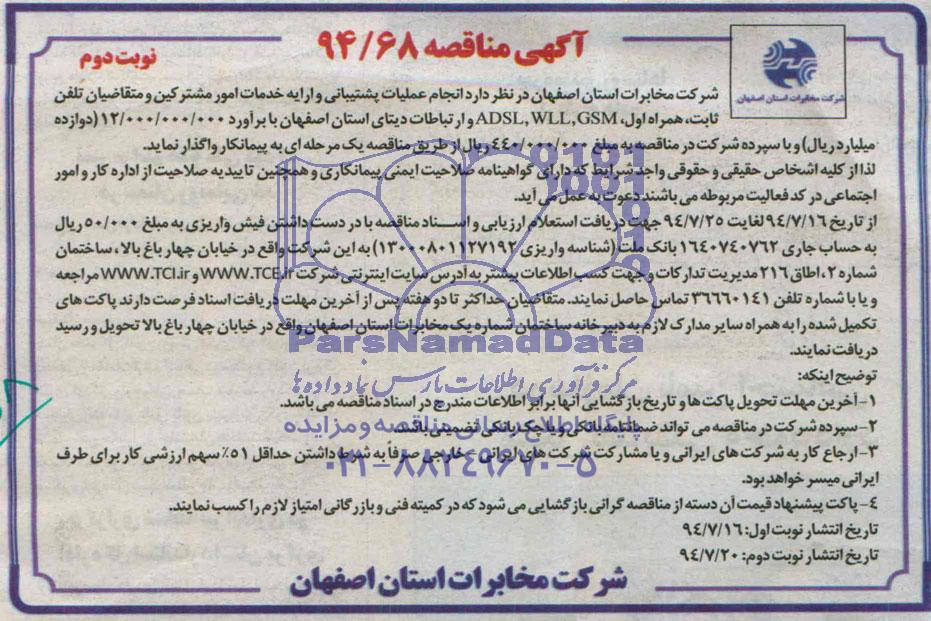 آگهی مناقصه ۹۴/۶۸
نوبت دوم
شرکت مخابرات استان اصفهان
شرکت مخابرات استان اصفهان در نظر دارد انجام عملیات پشتیبانی و ارایه خدمات امور مشترکین و متقاضیان تلفن
ثابت، همراه اول، ADSL, WLL, GSM و ارتباطات دیتای استان اصفهان با برآورد ۱۲/۰۰۰/۰۰۰/۰۰۰ (دوازده
میلیارد ریال) و با سپرده شرکت در مناقصه به مبلغ ۴۴۰/۰۰۰/۰۰۰ ریال از طریق مناقصه یک مرحله ای به پیمانکار واگذار نماید.
لذا از کلیه اشخاص حقیقی و حقوقی واجد شرایط که دارای گواهینامه صلاحیت ایمنی پیمانکاری و همچنین تاییدیه صلاحیت از اداره کار و امور
اجتماعی در کد فعالیت مربوطه می باشند دعوت به عمل می آید.
از تاریخ ۹۴/۷/۱۶ لغایت ۹۴/۷/۲۵ جهت دریافت استعلام ارزیابی و اسناد مناقصه با در دست داشتن فیش واریزی به مبلغ ۵۰/۰۰۰ ریال
به حساب جاری ۱۶۴۰۷۴۰۷۶۲ بانک ملت (شناسه واریزی ۱۳۰۰۰۸۰۱۱۲۷۱۹۲) به این شرکت واقع در خیابان چهار باغ بالا، ساختمان
شماره ۲، اطاق ۲۱۶ مدیریت تدارکات و جهت کسب اطلاعات بیشتر به آدرس سایت اینترنتی شرکت WWW.TCE.ir و WWW.TCI.ir مراجعه
و یا با شماره تلفن ۳۶۶۶۰۱۴۱ تماس حاصل نمایند. متقاضیان حداکثر تا دو هفته پس از آخرین مهلت دریافت اسناد فرصت دارند پاکت های
تکمیل شده را به همراه سایر مدارک لازم به دبیرخانه ساختمان شماره یک مخابرات استان اصفهان واقع در خیابان چهار باغ بالا تحویل و رسید
دریافت نمایند.
توضیح اینکه:
۱- آخرین مهلت تحویل پاکت ها و تاریخ بازگشایی آنها برابر اطلاعات مندرج در اسناد مناقصه می باشد.
۲- سپرده شرکت در مناقصه می تواند ضمانتنامه بانکی و یا چک بانکی تضمینی باشد.
۳- ارجاع کار به شرکت های ایرانی و یا مشارکت شرکت های ایرانی - خارجی صرفاً به شرط داشتن حداقل ۵۱٪ سهم ارزشی کار برای طرف
ایرانی میسر خواهد بود.
۴- پاکت پیشنهاد قیمت آن دسته از مناقصه گرانی بازگشایی می شود که در کمیته فنی و بازرگانی امتیاز لازم را کسب نمایند.
تاریخ انتشار نوبت اول: ۹۴/۷/۱۶
تاریخ انتشار نوبت دوم: ۹۴/۷/۲۰
شرکت مخابرات استان اصفهان
ParsNamadData
مرکز فرآوری اطلاعات پارس نماد داده ها
پایگاه اطلاع رسانی مناقصه و مزایده
۰۲۱-۸۸۳۴۹۶۷۰-۵